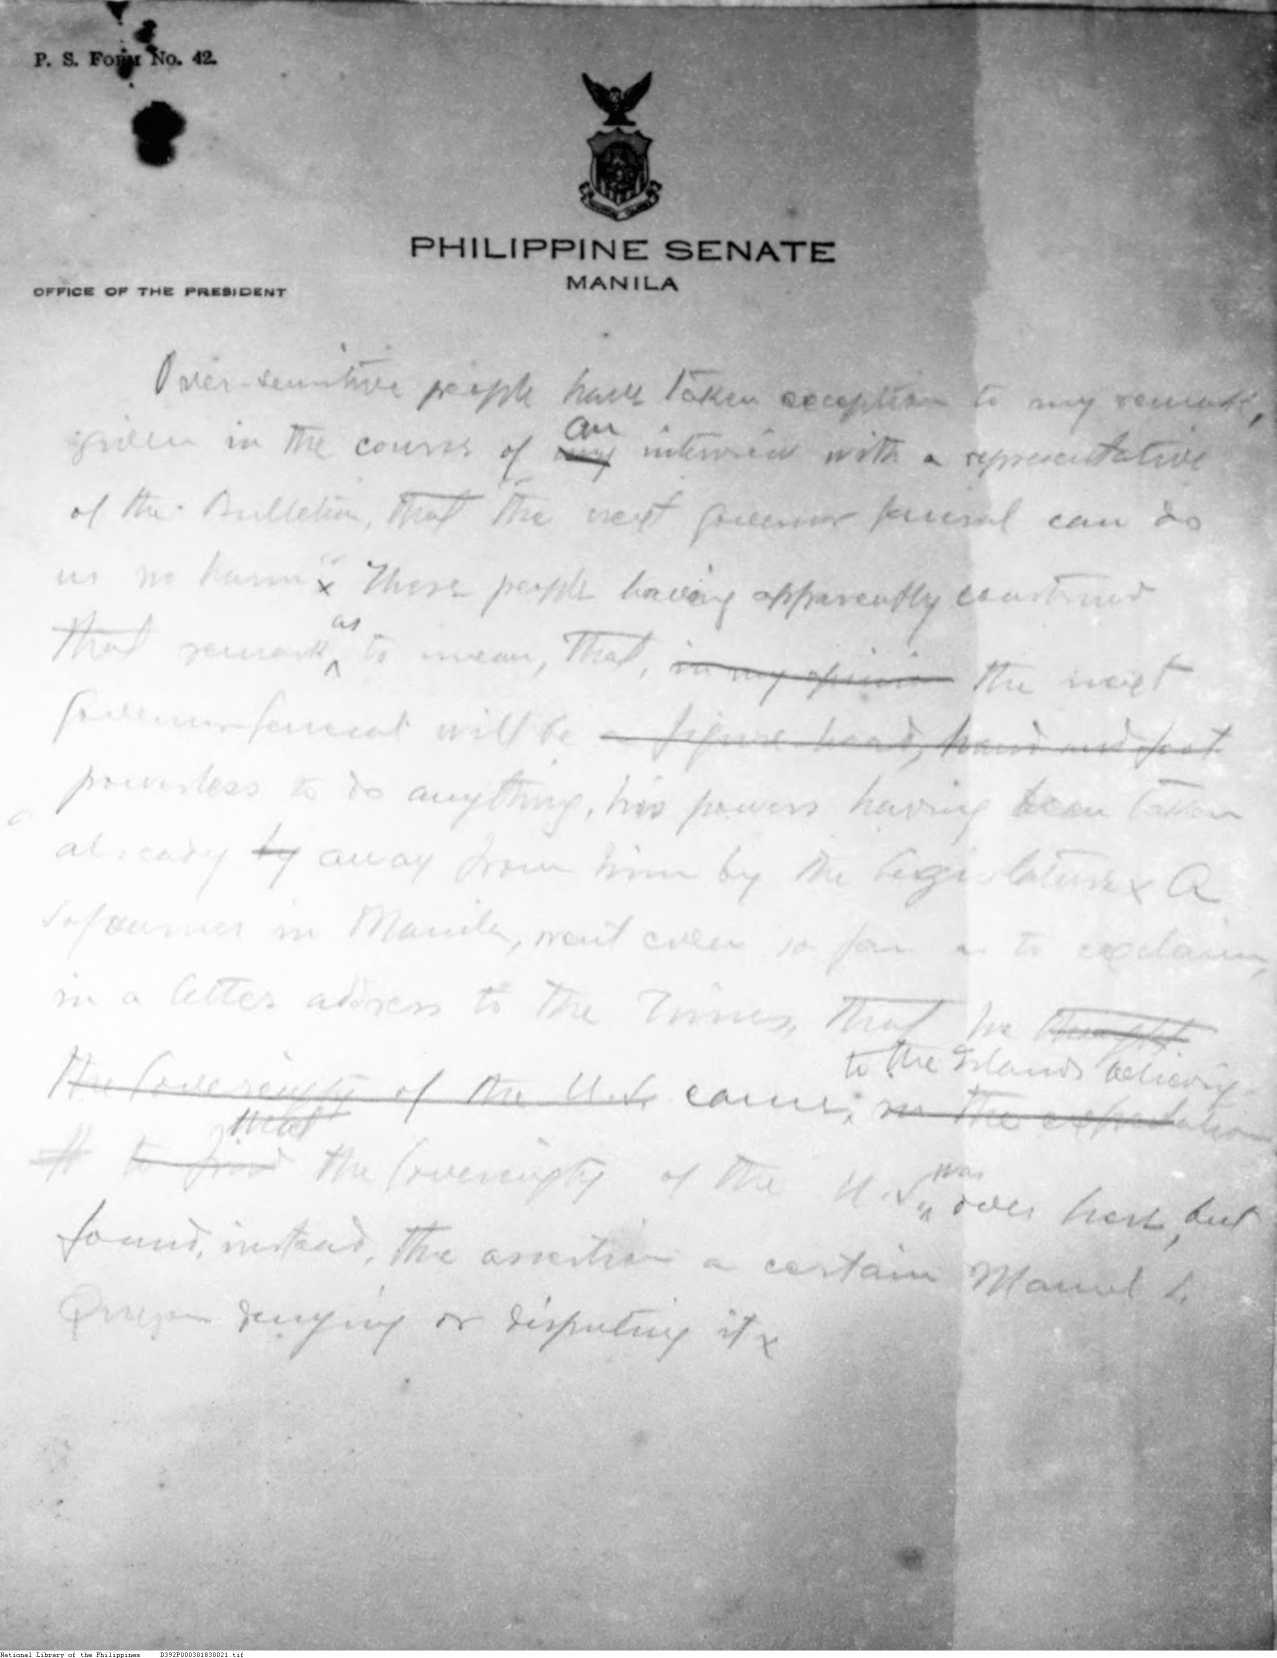 P. S. Form No. 42.
PHILIPPINE SENATE
MANILA
OFFICE OF THE PRESIDENT
Over-sensitive people have taken exception to my remark,
given in the course of an
my interview with a representative
of the Bulletin, that "the next governor general can do
us no harm" x These people having apparently construed
that remark as to mean, that, in my opinion the next
Governor-General will be a figure head, hand and foot
powerless to do anything, his powers having been taken
already by away from him by the legislature x A
sojourner in Manila, went even so far as to explain,
in a letter address to the Times, that he thought
the sovereignty of the U.S. came; in the expectation
to the Islands believing
that
# to find the sovereignty of the U.S. was over here, but
found, instead, the assertion a certain Manuel L.
Quezon denying or disputing it x
National Library of the Philippines D392P000381838021.tif